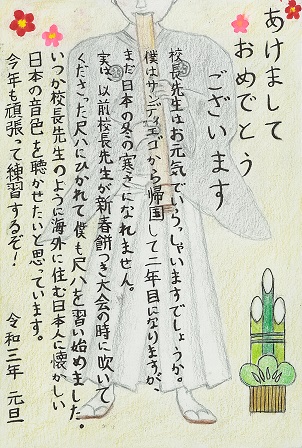 あけまして
おめでとう
ございます
校長先生はお元気でいらっしゃいますでしょうか。
僕はサンディエゴから帰国して二年目になりますが、
まだ日本の冬の寒さになれません。
実は、以前校長先生が新春餅つき大会の時に吹いて
くださった尺八にひかれて僕も尺八を習い始めました。
いつか校長先生のように海外に住む日本人に懐かしい
日本の音色を聴かせたいと思っています。
今年も頑張って練習するぞ!
令和三年 元旦